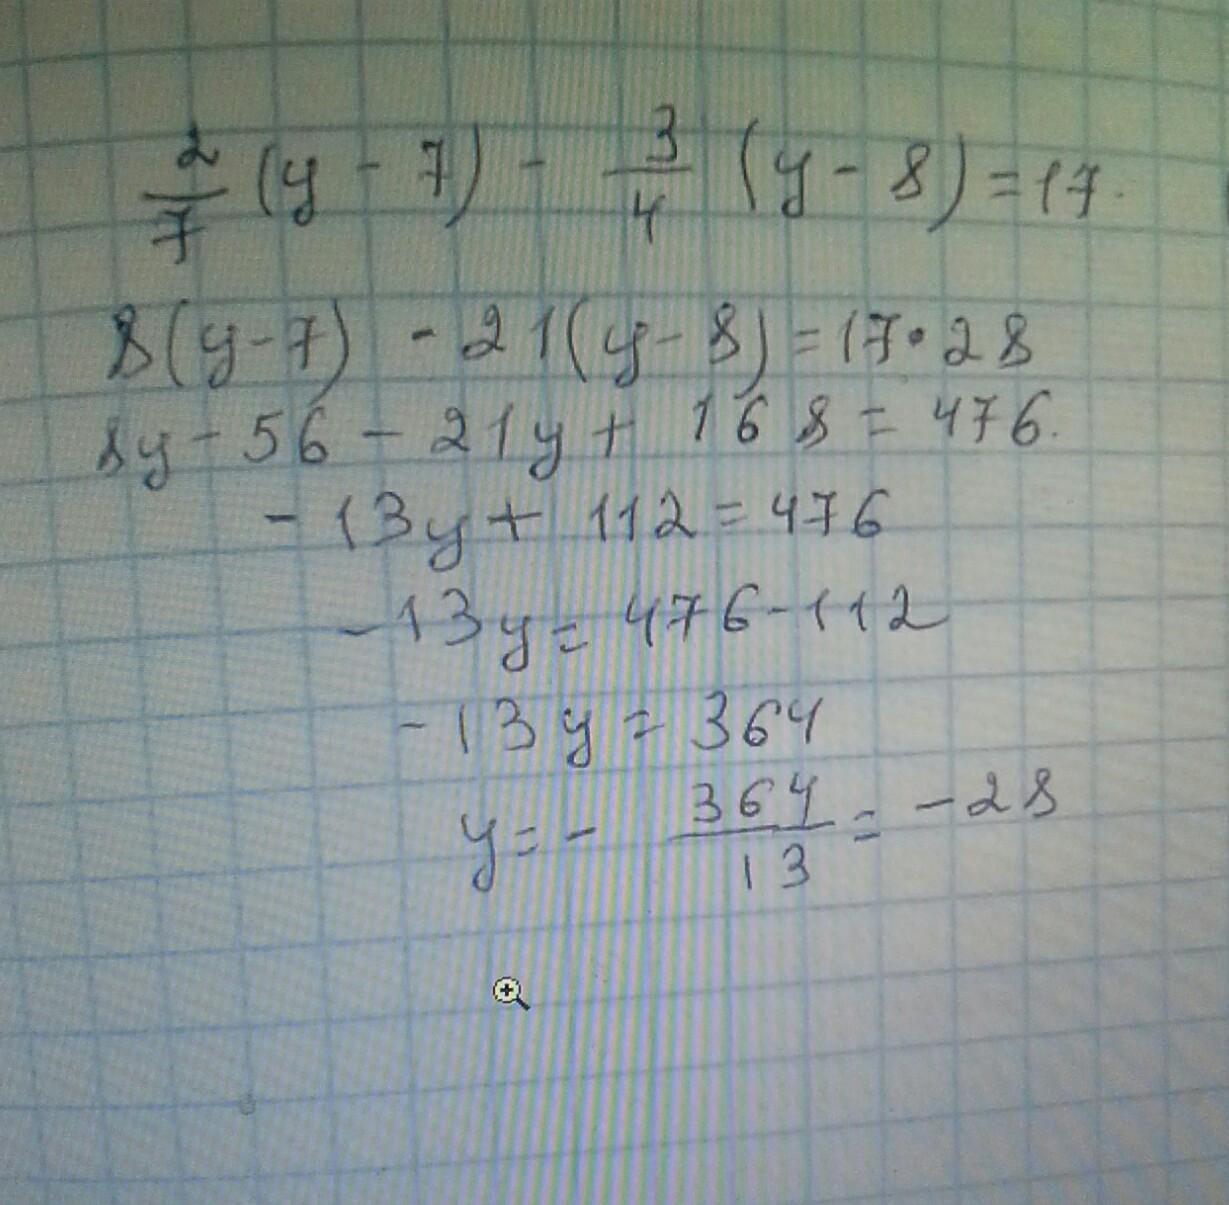 2/7 (y - 7) - 3/4 (y - 8) = 17.
8(y-7) - 21(y-8) = 17·28
8y - 56 - 21y + 168 = 476.
-13y + 112 = 476
-13y = 476-112
-13y = 364
y = - 364/13 = -28